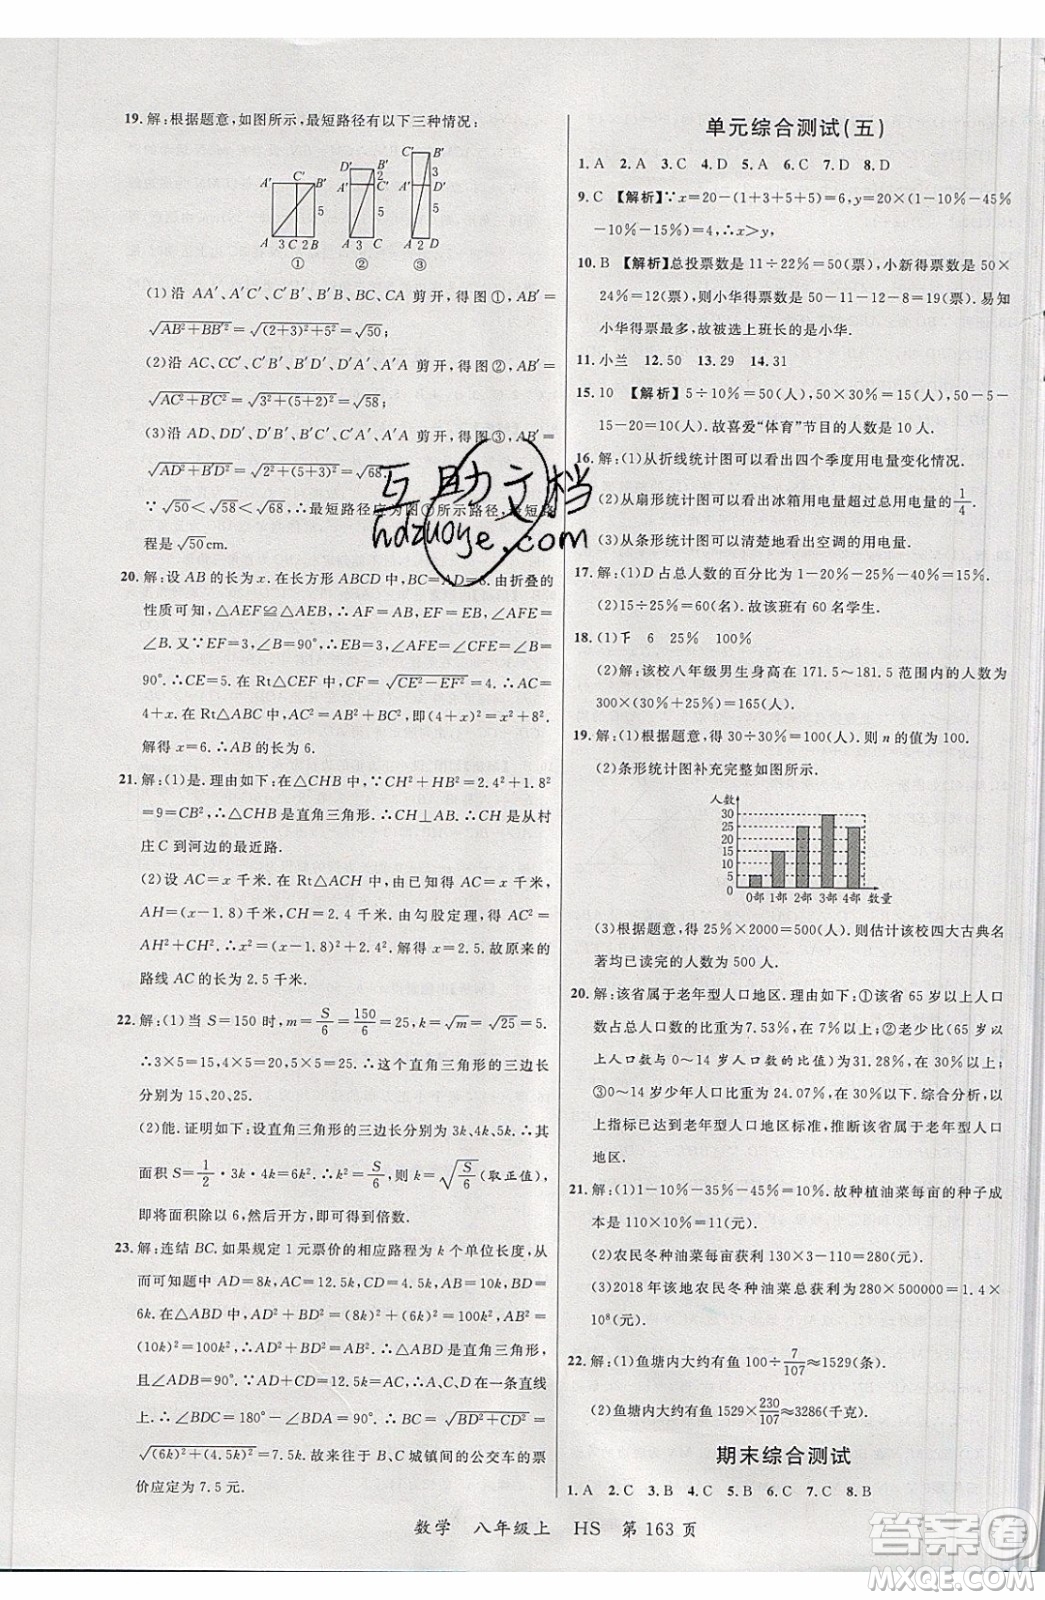 19. 解:根据题意,如图所示,最短路径有以下三种情况:
A′ C′ B′ 5 A 3 C 2 B ①
D′ B′ 2 A′ C′ 5 A 3 C ②
C′ B′ 3 A′ D′ 5 A 2 D ③
(1)沿 AA′、A′C′、C′B′、B′B、BC、CA 剪开,得图①,AB′=
√(AB²+BB′²)=√((2+3)²+5²)=√50;
(2)沿 AC、CC′、C′B′、B′D′、D′A′、A′A 剪开,得图②,AB′=
√(AC²+B′C²)=√(3²+(5+2)²)=√58;
(3)沿 AD、DD′、D′B′、B′C′、C′A′、A′A 剪开,得图③,AB′=
√(AD²+B′D²)=√(2²+(5+3)²)=√68.
∵√50<√58<√68,∴最短路径应为图①所示路径,最短路
程是√50cm.
20. 解:设 AB 的长为 x. 在长方形 ABCD 中,BC=AD=8. 由折叠的
性质可知,△AEF≌△AEB,∴AF=AB,EF=EB,∠AFE=
∠B. 又∵EB=3,∠B=90°,∴EF=3,∠AFE=∠CFE=∠B=
90°.∴CE=5. 在 Rt△CEF 中,CF=√(CE²−EF²)=4.∴AC=
4+x. 在 Rt△ABC 中,AB²+BC²=AC²,即(4+x)²=x²+8².
解得 x=6.∴AB 的长为 6.
21. 解:(1)是. 理由如下:在△CHB 中,∵CH²+HB²=2.4²+1.8²
=9=CB²,∴△CHB 是直角三角形.∴CH⊥AB.∴CH 是从村
庄 C 到河边的最近路.
(2)设 AC=x 千米. 在 Rt△ACH 中,由已知得 AC=x 千米,
AH=(x−1.8)千米,CH=2.4 千米. 由勾股定理,得 AC²=
AH²+CH².∴x²=(x−1.8)²+2.4². 解得 x=2.5. 故原来的
路线 AC 的长为 2.5 千米.
22. 解:(1)当 S=150 时,m=S/6=150/6=25,k=√m=√25=5.
∴3×5=15,4×5=20,5×5=25.∴这个直角三角形的三边长
分别为 15、20、25.
(2)能. 证明如下:设直角三角形的三边长分别为 3k、4k、5k. 其
面积 S=1/2·3k·4k=6k².∴k²=S/6,则 k=√(S/6)(取正值),
即将面积除以 6,然后开方,即可得到倍数.
23. 解:连结 BC. 如果规定 1 元票价的相应路程为 k 个单位长度,从
而可知题中 AD=8k,AC=12.5k,CD=4.5k,AB=10k,BD=
6k. 在△ABD 中,AD²+BD²=(8k)²+(6k)²=(10k)²,AB²=
(10k)²=100k².∴AD²+BD²=AB².∴△ABD 是直角三角形,
且∠ADB=90°.∵AD+CD=AC,∴点 A、D、C 在一条直线
上.∴∠BDC=180°−∠ADB=90°.∴BC=√(BD²+CD²)=
√((6k)²+(4.5k)²)=7.5k. 故往来于 B、C 城镇间的公交车的票
价应定为 7.5 元.
单元综合测试(五)
1. A 2. A 3. C 4. D 5. A 6. C 7. D 8. D
9. C 【解析】∵x=20−(1+3+5+5)=6,y=20×(1−10%−45%
−10%−15%)=4,∴x>y,
10. B 【解析】总投票数是 11÷22%=50(票),小新得票数是 50×
24%=12(票),则小华得票数是 50−11−12−8=19(票). 易知
小华得票最多,故被选上班长的是小华.
11. 小兰 12. 50 13. 29 14. 31
15. 10 【解析】5÷10%=50(人),50×30%=15(人),50−5−
15−20=10(人). 故喜爱“体育”节目的人数是 10 人.
16. 解:(1)从折线统计图可以看出四个季度用电量变化情况.
(2)从扇形统计图可以看出冰箱用电量超过总用电量的1/4.
(3)从条形统计图可以清楚地看出空调的用电量.
17. 解:(1)D 占总人数的百分比为 1−20%−25%−40%=15%.
(2)15÷25%=60(名). 故该班有 60 名学生.
18. (1)正 6 25% 100%
(2)解:该校八年级男生身高在 171.5~181.5 范围内的人数为
300×(30%+25%)=165(人).
19. 解:(1)根据题意,得 30÷30%=100(人). 则 n 的值为 100.
(2)条形统计图补充完整如图所示.
人数
30
25
20
15
10
5
0
0部 1部 2部 3部 4部 数量
(3)根据题意,得 25%×2000=500(人). 则估计该校四大古典名
著均已读完的人数为 500 人.
20. 解:该省属于老年型人口地区. 理由如下:①该省 65 岁以上人口
数占总人口数的比重为 7.53%,在 7%以上;②老少比(65 岁以
上人口数与 0~14 岁人口数的比值)为 31.28%,在 30%以上;
③0~14 岁少年人口比重为 24.07%,在 30%以下. 综合分析,以
上数据均符合老年型人口地区标准,推断该省属于老年型人口
地区.
21. 解:(1)1−10%−35%−45%=10%. 故种植油菜每亩的种子成
本是 110×10%=11(元).
(2)农民冬种油菜每亩获利 130×3−110=280(元).
(3)2018 年该地农民冬种油菜总获利为 280×500000=1.4×
10⁸(元).
22. 解:(1)鱼塘内大约有鱼 100÷7/107≈1529(条).
(2)鱼塘内大约有鱼 1529×230/107≈3286(千克).
期末综合测试
1. A 2. C 3. B 4. C 5. B 6. C 7. B 8. B
数学 八年级上 HS 第 163 页
互助文档
hdzuoye.com
答案圈
MXQE.COM